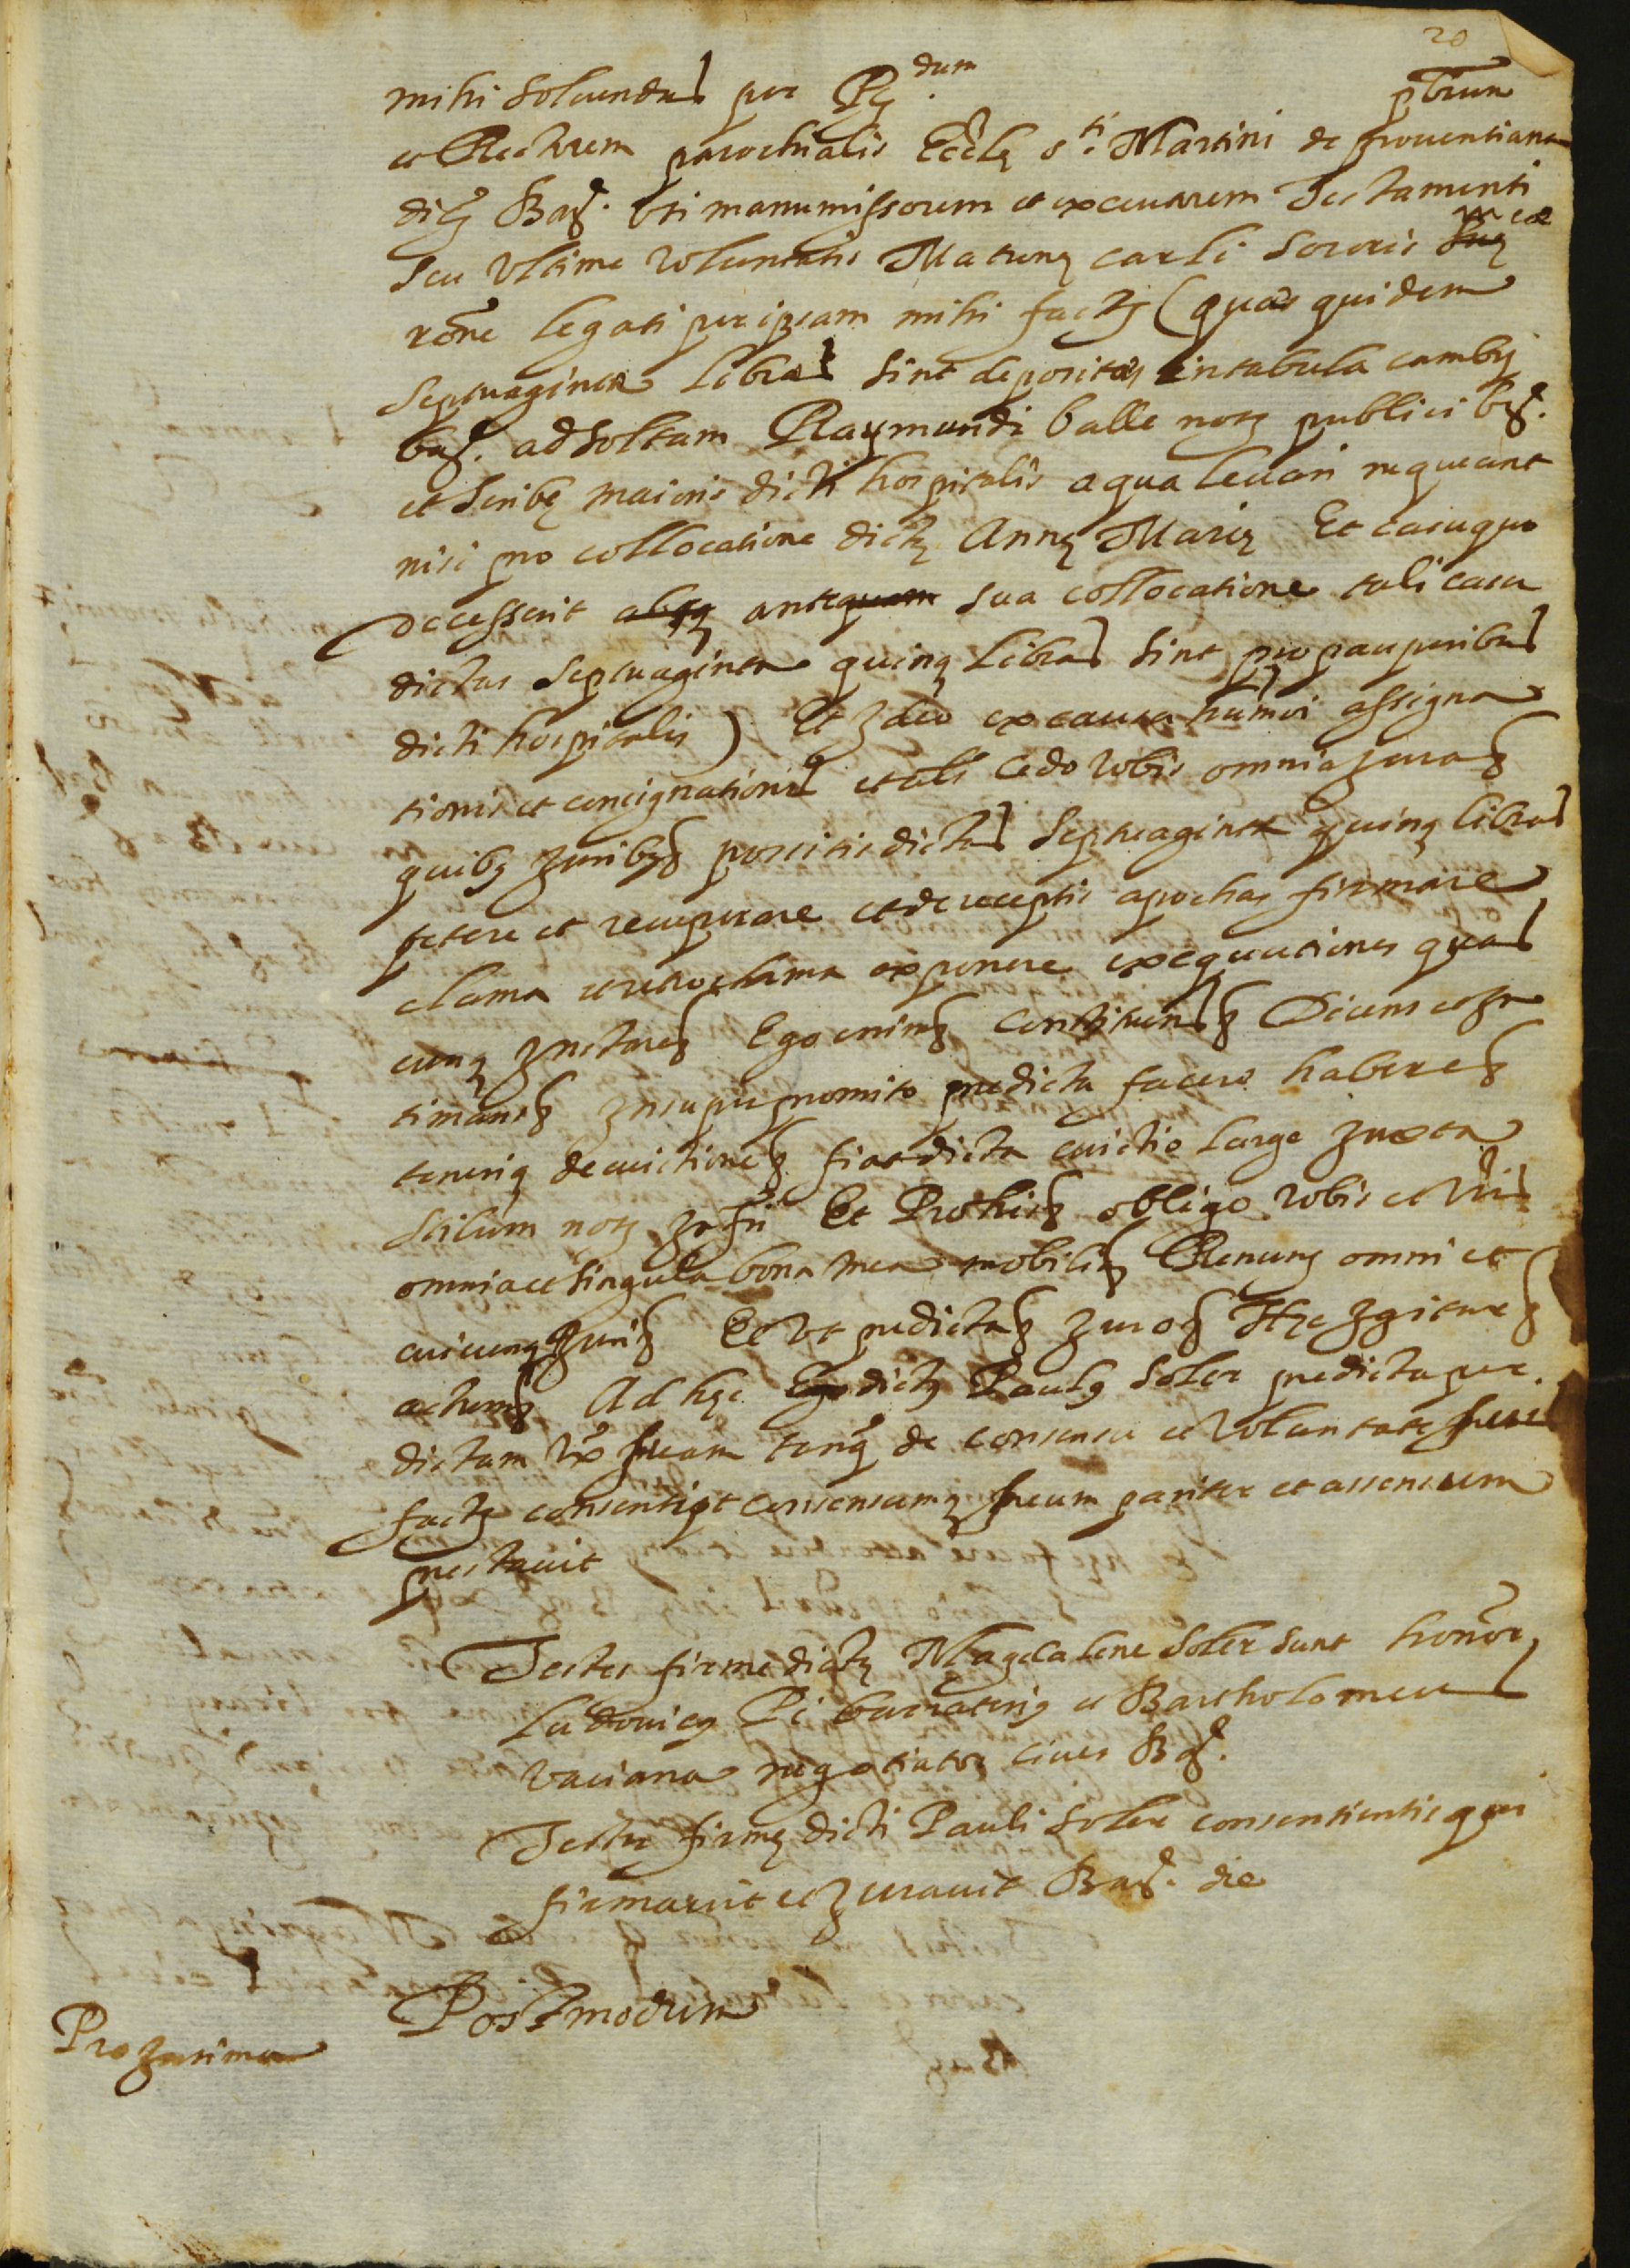 20
mihi solvendas per R.dum pbrum
et Rectorem parochialis Eccle s.ti Martini de provensiana
dice Barne. uti manumissorem et executorem Testamenti
seu ultime voluntatis Maturne carli sororis sue mee
rōne legati per ipsam mihi facti (quas quidem
septuaginta libras sint depositas in tabula cambij
barne. ad soltam Raymundi balle notij publici bar.
et scribe maioris dicti hospitalis a qua levari nequeant
nisi pro collocatione dicte Anne Marie Et casu quo
decesserit absq antequam sua collocatione tali casu
dictas septuaginta quinq libras sint pro pauperibus
dicti hospitalis) Et Ideo ex causa huīmōi assigna
tionis et consignationis et als Cedo vobis omnia jura
quibq juribq possitis dictas septuaginta quinq libras
petere et recuperare et de receptis apochas firmare
clama et retroclama exponere exequutiones quas
cunq Instare Ego enim Constituens Dicens et In
timans Insuper promito predicta facere habere
tenerig de evictione fiat dicta evictio large Juxta
stilum notij Infri Et Pro his obligo vobis et vris
omnia et singula bona mea mobilia Renunq omni et
cuicunq Juri Et ut predicta Juro Hec Igitur
actum Ad hec Ego dictq Paulq Soler predicta per
dictam ux suam tanq de consensu et voluntate suis
facta consentit consensumq suum pariter et assensum
prestavit
Testes firme dicte Magdalene Soler sunt honor
Ludovicq Pi barraterij et Bartholomeus
vaciana negotiator cives Bar.
Testes firme dicti Pauli Soler consentientis qui
firmavit et Juravit Barne. die
Postmodum
Pro Insima